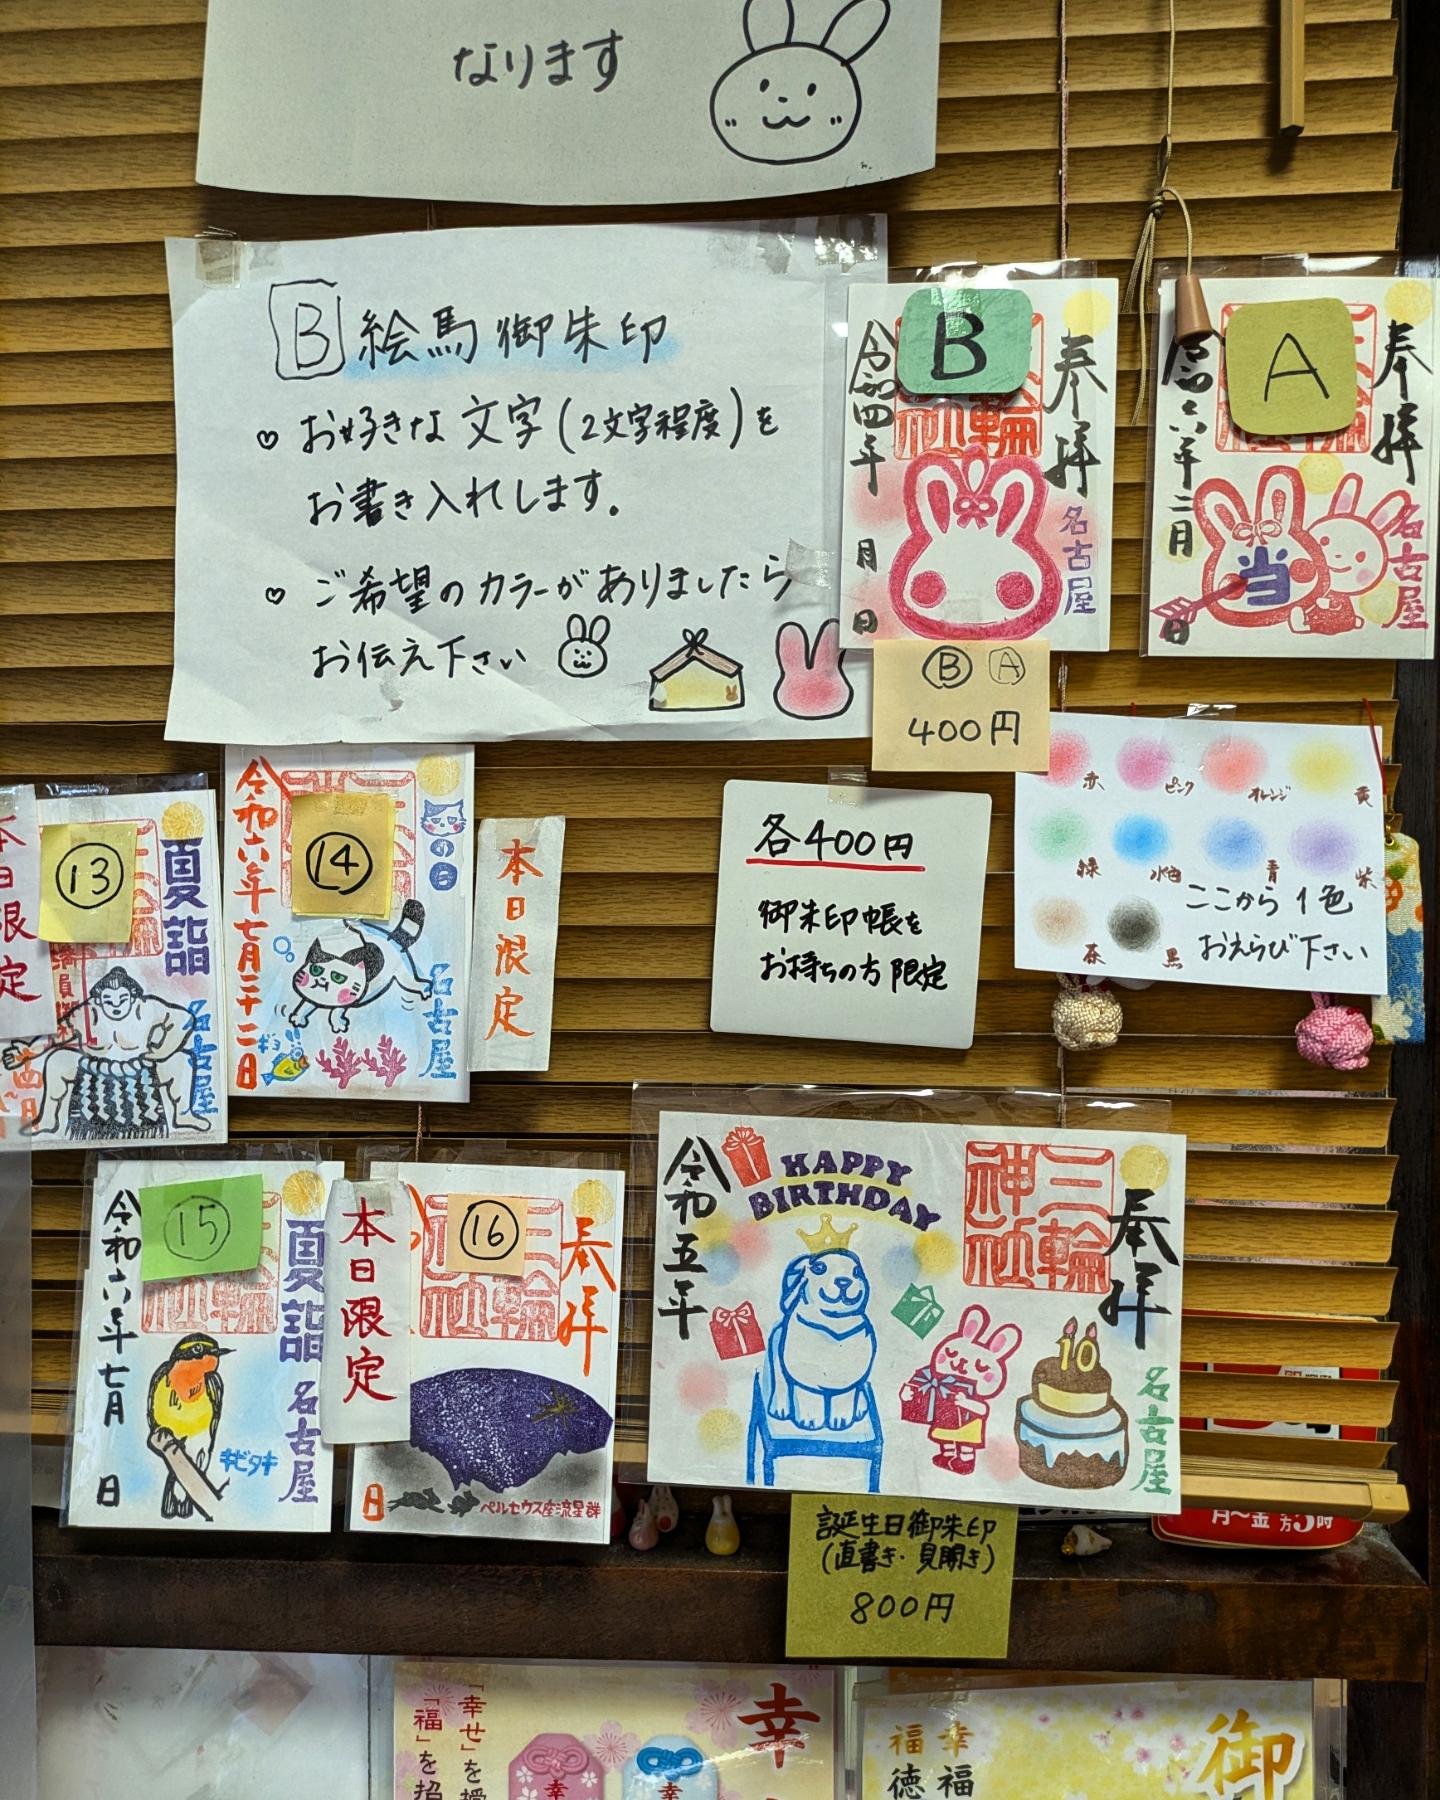 なります
B 絵馬御朱印
♡ お好きな文字(2文字程度)を
お書き入れします。
♡ ご希望のカラーがありましたら
お伝え下さい
B
奉拝
名古屋
令和四年 月 日
A
奉拝
名古屋
当
令和六年二月 日
Ⓑ Ⓐ
400円
赤 ピンク オレンジ 黄
緑 水色 青 紫
茶 黒
ここから1色
おえらび下さい
各400円
御朱印帳を
お持ちの方限定
本日限定
⑬
夏詣
名古屋
⑭
の日
名古屋
ギョ
令和六年七月二十二日
本日限定
⑮
夏詣
名古屋
キビタキ
令和六年七月 日
本日限定
⑯
奉拝
ペルセウス座流星群
日
HAPPY
BIRTHDAY
三輪神社
奉拝
名古屋
10
令和五年
誕生日御朱印
(直書き・見開き)
800円
月〜金
5時
「幸せ」を授
「福」を招
幸
幸
幸
幸福
福徳
御